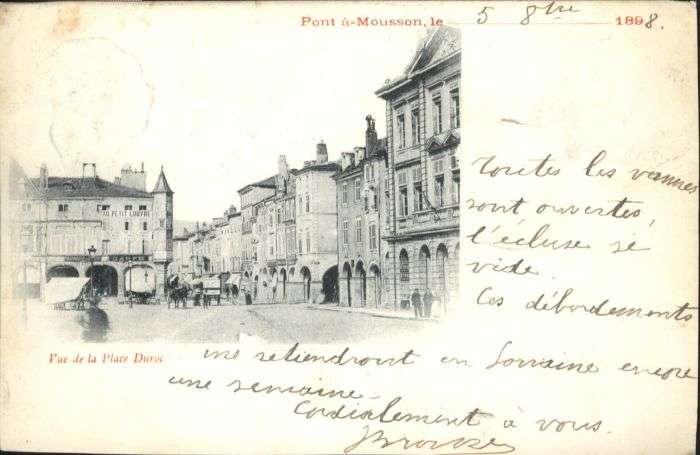 Pont à-Mousson, le 5 8bre 1898.
AU PETIT LOUVRE
Toutes les vannes
sont ouvertes,
l'écluse se
vide.
Ces débordements
me retiendront en Lorraine encore
une semaine.
Cordialement à vous.
Vue de la Place Duroc